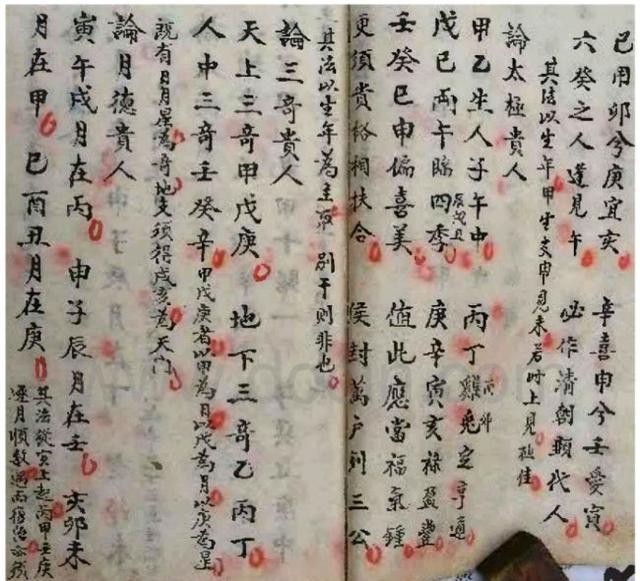 己用卯兮庚宜亥　辛喜申兮壬愛寅
六癸之人逢見午　必作清朝顯代人
其法以生年甲生支申見未若時上見極佳
論太極貴人
甲乙生人子午中　丙丁雞兔定亨通
戊己兩午臨四季　庚辛寅亥祿盈豐
壬癸巳申偏喜美　值此應當福氣鍾
更須貴格相扶合　侯封萬戶列三公
其法以生年為主取別干則非也
論三奇貴人
天上三奇甲戊庚　地下三奇乙丙丁
人中三奇壬癸辛　甲戊庚者以甲為日以戊為月以庚為星
既有日月星為奇地支須得戌亥為天門
論月德貴人
寅午戌月在丙　申子辰月在壬　亥卯未
月在甲　巳酉丑月在庚　其法從寅上起丙甲壬庚
逐月順數